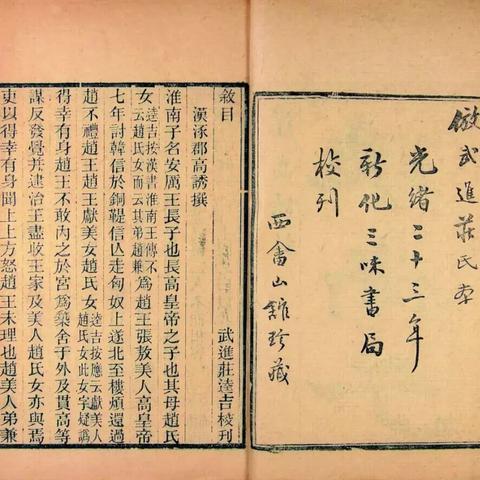 倣武進莊氏本
光緒二十三年
新化三味書局
校刊
西畬山館珍藏
敘目
漢涿郡高誘撰 武進莊逵吉校刊
淮南子名安厲王長子也長高皇帝之子也其母趙氏
女逵吉按漢書淮南王傳不云趙氏女而云其弟趙兼爲趙王張敖美人高皇帝
七年討韓信於銅鞮信亾走匈奴上遂北至樓煩還過
趙不禮趙王趙王獻美女趙氏女逵吉按應云獻美人趙氏女此女字疑譌
得幸有身趙王不敢內之於宮爲築舍于外及貫高等
謀反發覺并逮治王盡收王家及美人趙氏女亦與焉
吏以得幸有身聞上上方怒趙王未理也趙美人弟兼